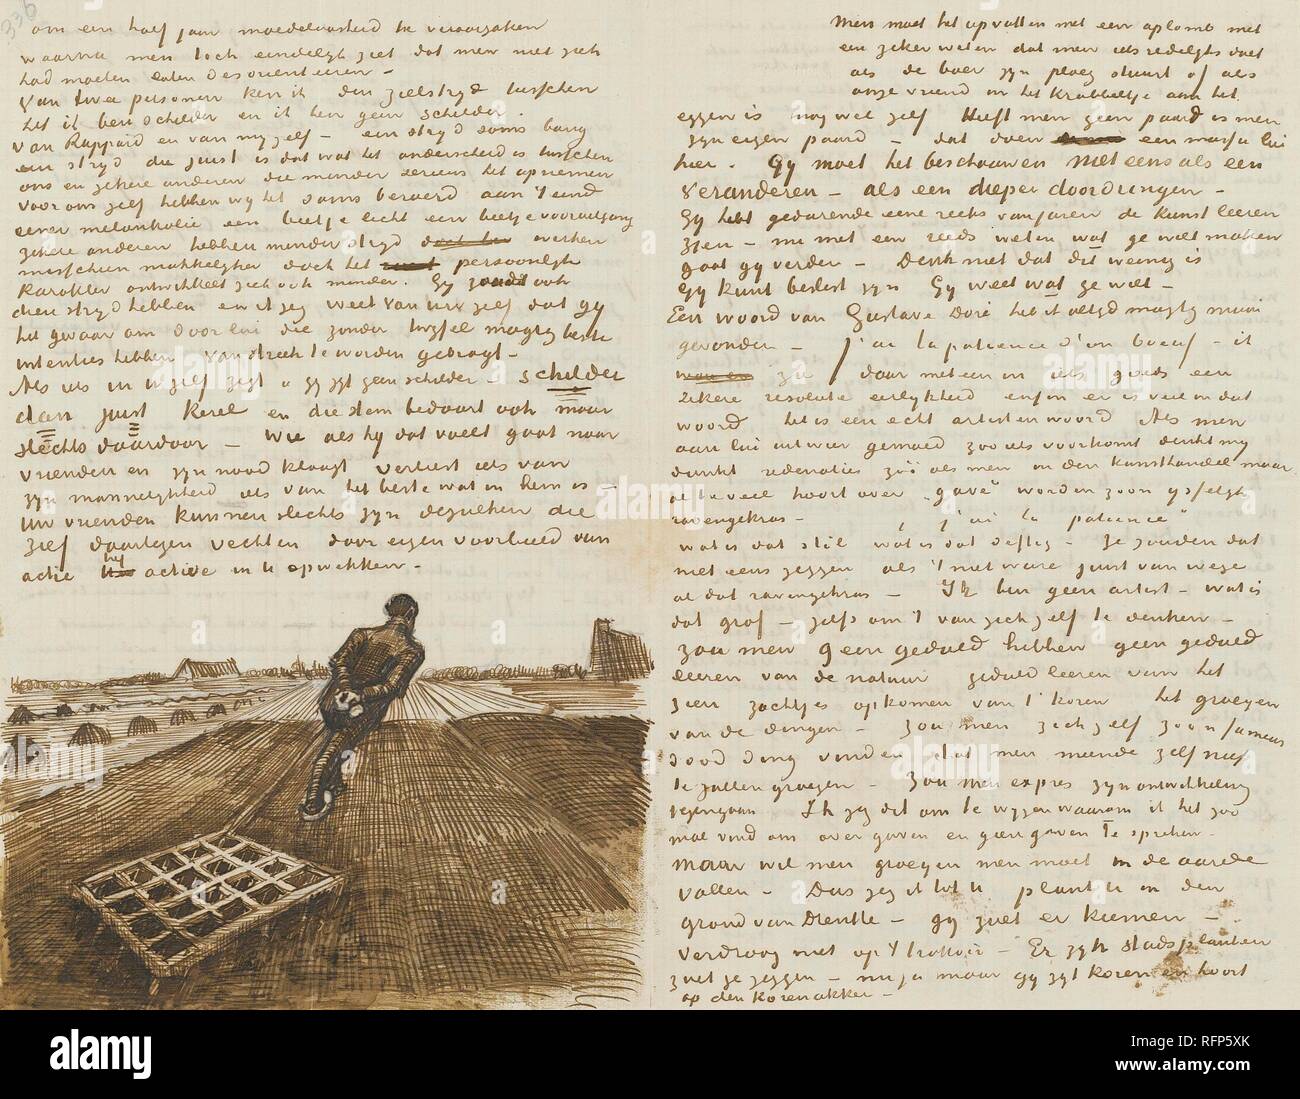 336
om een half jaar moedeloosheid te veroorzaken
waarna men toch eindelijk ziet dat men niet zich
had moeten laten desorienteeren –
Van twee personen ken ik den zielstrijd tusschen
het ik ben schilder en ik ben geen schilder.
Van Rappard en van myzelf – een strijd soms bang
een strijd die juist is dat wat het onderscheid is tusschen
ons en zekere anderen die minder serieus het opnemen
voor ons zelf hebben wy het soms beroerd aan 't eind
eener melankolie een beetje licht een beetje vooruitgang
zekere anderen hebben minder strijd werken
misschien makkelijker doch het persoonlijk
karakter ontwikkelt zich ook minder. Gy zoudt ook
dien strijd hebben en ik zeg weet van uw zelf dat gy
het gevaar om door lui die zonder twyfel magtig beste
intenties hebben van streek te worden gebragt –
Als iets in U zelf zegt „ gy zyt geen schilder – schilder
dan juist kerel en die stem bedaart ook maar
slechts daardoor – Wie als hy dat voelt gaat naar
vrienden en zyn nood klaagt verliest iets van
zyn mannelijkheid iets van het beste wat in hem is –
Uw vrienden kunnen slechts zyn dezulken die
zelf daartegen vechten door eigen voorbeeld van
actie hy active in U opwekken –
Men moet het opvatten met een aplomb met
een zeker weten dat men iets redelijks doet
als de boer zyn ploeg stuurt of als
onze vriend in het krabbeltje aan het
eggen is nog wel zelf Heeft men geen paard is men
zyn eigen paard – dat doen een massa lui
hier. Gy moet het beschouwen niet eens als een
veranderen – als een dieper doordringen –
Gy hebt gedurende eene reeks van jaren de kunst leeren
zien – nu met een reeds weten wat ge wilt maken
gaat gy verder – Denk niet dat dit weinig is
Gy kunt beslist zyn Gy weet wat ge wilt –
Een woord van Gustave Doré heb ik altyd magtig mooi
gevonden – j'ai la patience d'un boeuf – ik
zie daar meteen in iets goeds een
zekere resolute eerlijkheid enfin er is veel in dat
woord het is een echt artisten woord Als men
aan lui uit wier gemoed zoo iets voorkomt denkt my
dunkt redenaties zoo als men in den kunsthandel maar
al te veel hoort over „gave” worden zoon ysselyk
ravengekras – „ j'ai la patience”
wat is dat stil wat is dat deftig – Je zouden dat
niet eens zeggen als 't niet ware juist van wege
al dat ravengekras – Ik ben geen artist – wat is
dat grof – zelfs om 't van zich zelf te denken –
zou men geen geduld hebben geen geduld
leeren van de natuur geduld leeren van het
zien zachtjes opkomen van 't koren het groeijen
van de dingen – zou men zich zelf zoon fameus
dood ding vinden dat men meende zelf niet
te zullen groeijen – Zou men expres zyn ontwikkeling
tegengaan Ik zeg dit om te wyzen waarom ik het zoo
mal vind om over gaven en geen gaven te spreken.
Maar wil men groeijen men moet in de aarde
vallen – Dus zeg ik tot U plant U in den
grond van Drenthe – gy zult er kiemen –
Verdroog niet op 't trottoir – Er zyn stadsplanten
zult ge zeggen – nu ja maar gy zyt koren en hoort
op den korenakker –
alamy
a
Image ID: RFP5XK
www.alamy.com